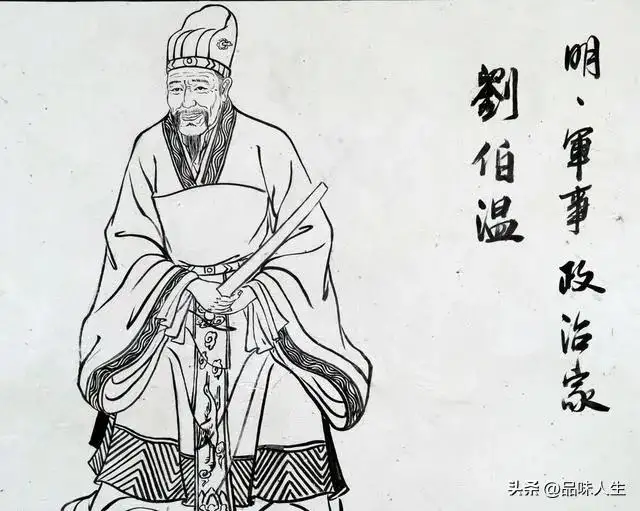 明、軍事政治家
劉伯温
头条 @品味人生